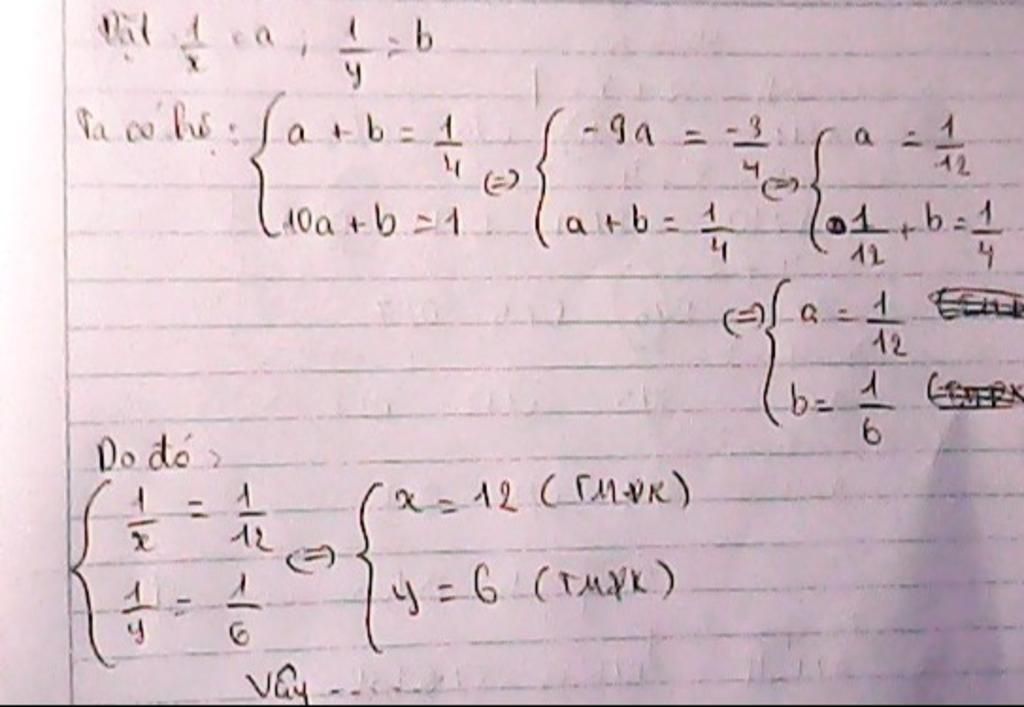 Đặt 1/x = a, 1/y = b
Ta có hệ: { a + b = 1/4 ; 10a + b = 1 (=) { -9a = -3/4 ; a + b = 1/4 (=) { a = 1/12 ; 1/12 + b = 1/4
(=) { a = 1/12 ; b = 1/6
Do đó,
{ 1/x = 1/12 ; 1/y = 1/6 (=) { x = 12 (TMĐK) ; y = 6 (TMĐK)
Vậy ........